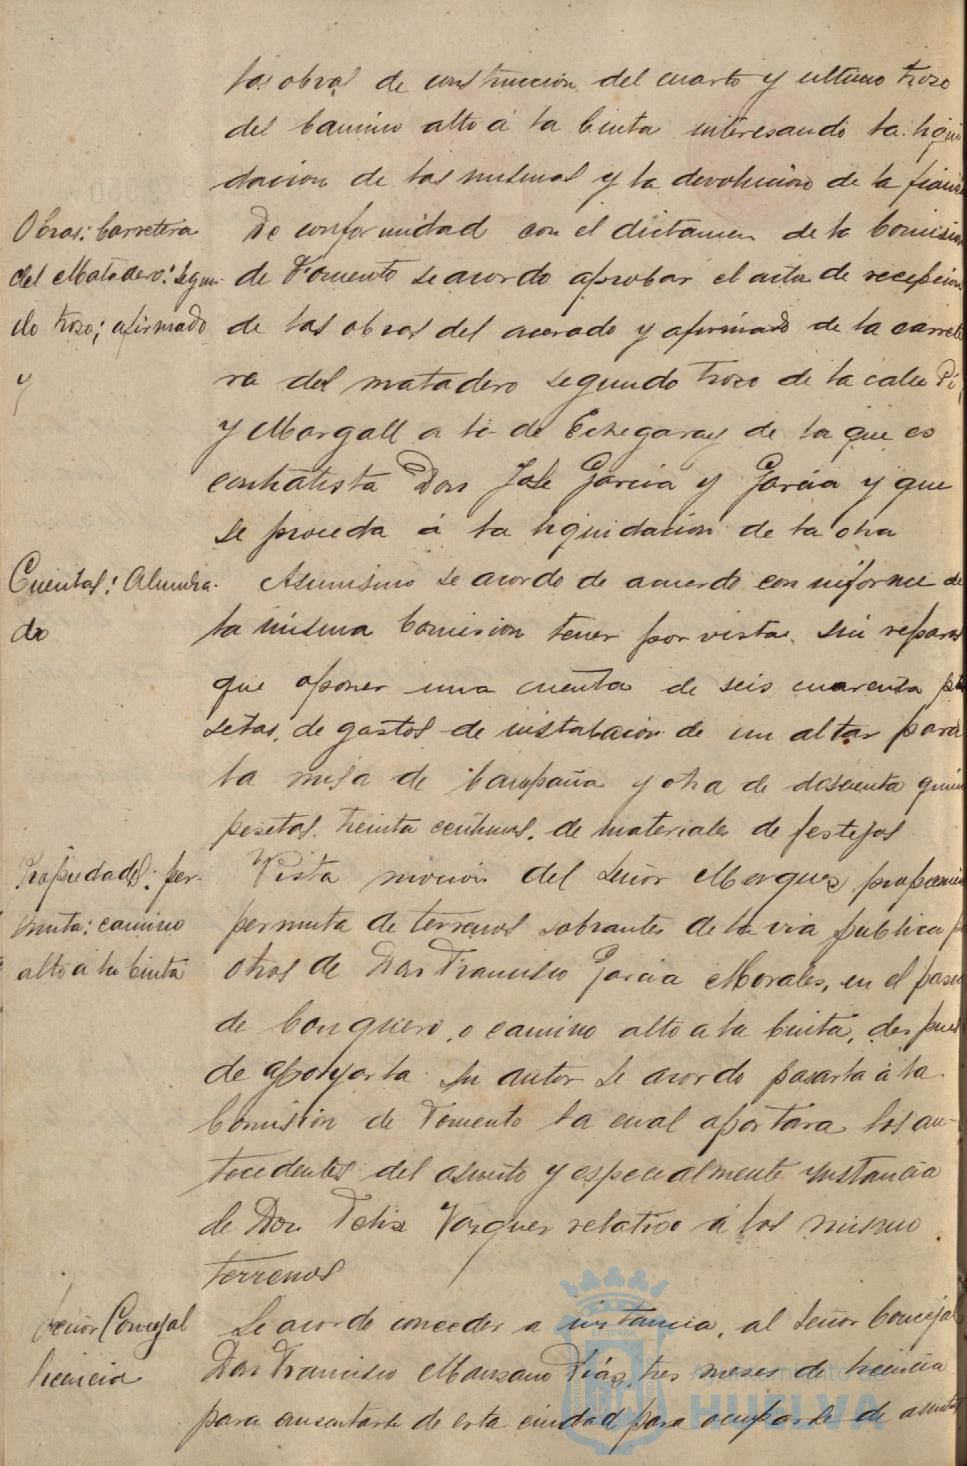 las obras de construccion del cuarto y ultimo trozo
del Camino alto á la Cinta interesando la liqui
dacion de las mismas y la devolucion de la fianza
Obras: Carretera
del Matadero: Segun-
do trozo; afirmado
y
De conformidad con el dictamen de la Comision
de Fomento se acordo aprobar el acta de recepcion
de las obras del acerado y afirmado de la carrete
ra del matadero segundo trozo de la calle Pi,
y Margall a la de Echegaray de la que es
contratista Don Jose Garcia y Garcia y que
se proceda á la liquidacion de la obra
Cuentas: Alumbra-
do
Asimismo se acordo de acuerdo con informe de
la misma Comision tener por vistas sin reparos
que oponer una cuenta de seis cuarenta pe
setas, de gastos de instalacion de un altar para
la misa de Campaña y otra de doscienta quin
pesetas treinta centimos, de materiales de festejos
Propiedades: per-
muta: camino
alto á la Cinta
Vista mocion del Señor Marquez proponien
permuta de terrenos sobrantes de la via publica p
otros de Don Francisco Garcia Morales, en el paseo
de Conquero, o camino alto a la Cinta, despues
de apoyarla su autor se acordo pasarla á la
Comision de Fomento la cual aportara los an-
tecedentes del asunto y especialmente instancia
de Don Felix Vazquez relativo á los mismo
terrenos
Señor Concejal
licencia
Se acordo conceder a instancia, al Señor Concejal
Don Francisco Manzano Diaz, tres meses de licencia
para ausentarse de esta ciudad para ocuparse de asuntos
Ayuntamiento de
HUELVA